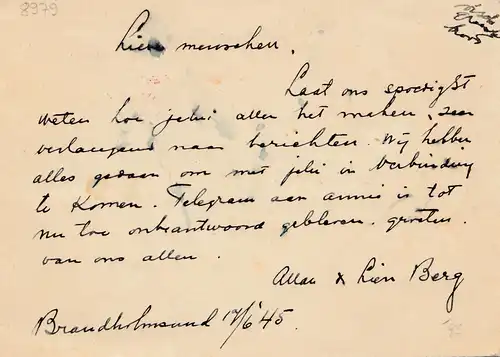 8979
Lieve menschen,
Laat ons spoedigst
weten hoe jelui allen het maken,
verlangend naar berichten. Wij hebben
alles gedaan om met jelui in Verbinding
te komen. Telegram aan annie is tot
nu toe onbeantwoord gebleven. groeten
van ons allen.
Allan & Lien Berg
Brandholmsund 17/6 '45.